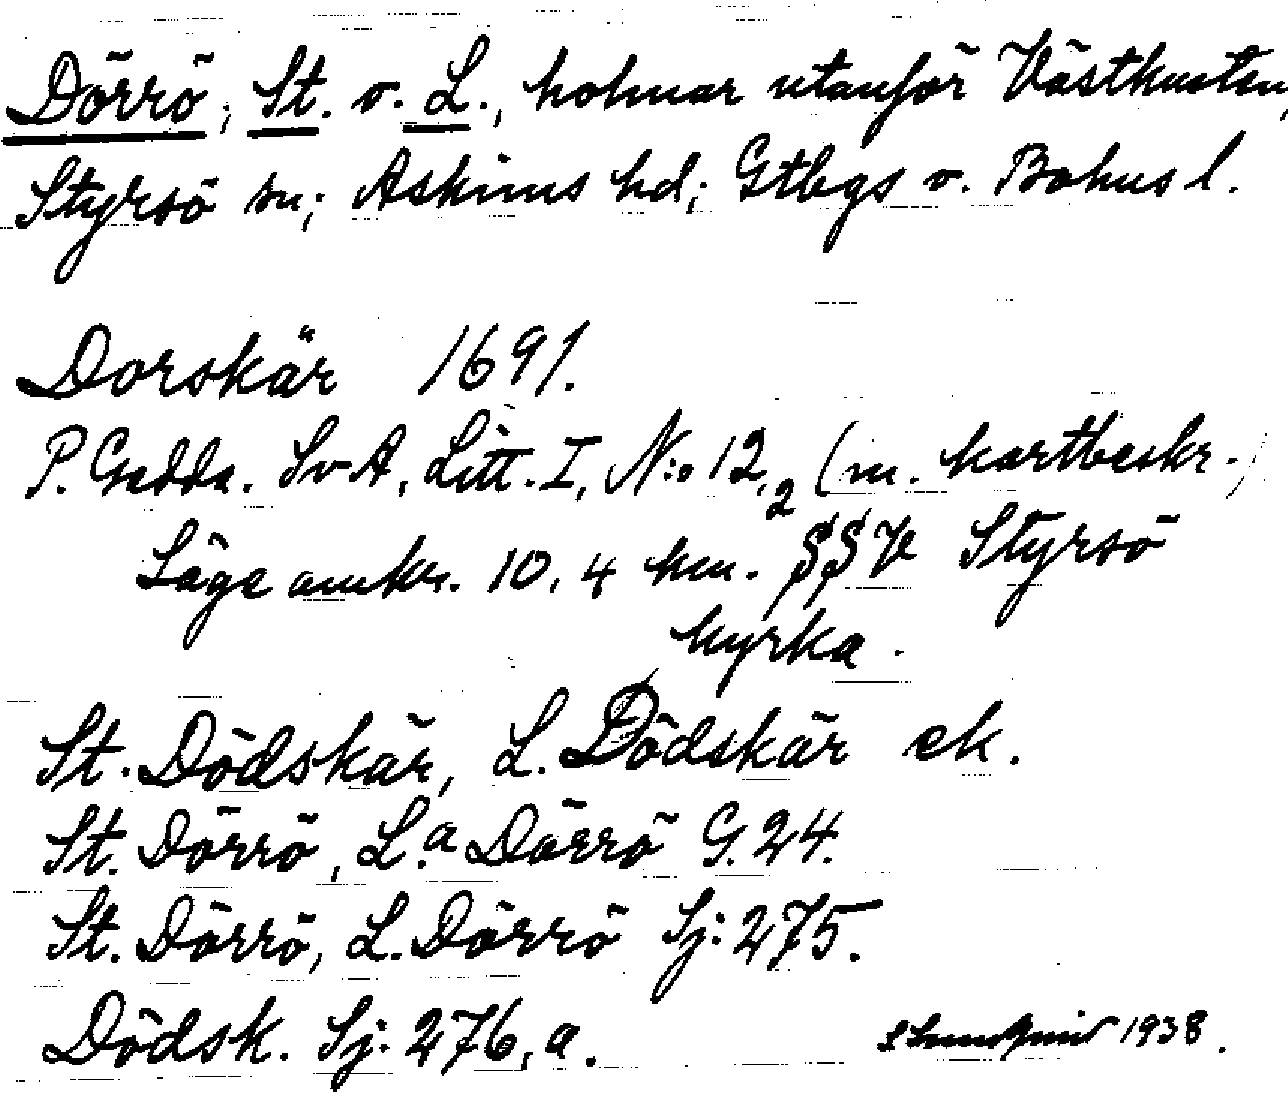 Dörrö, St. o. L., holmar utanför Västkusten,
Styrsö sn; Askims hd; Gtbgs o. Bohus l.
Dorskär 1691.
P. Gedda. SvA, Litt. I, N:o 12,2 (m. kartbeskr.)
Läge omkr. 10,4 km. SSV Styrsö
kyrka.
St. Dödskär, L. Dödskär ek.
St. Dörrö, L.a Dörrö G. 24.
St. Dörrö, L. Dörrö Sj: 275.
Dödsk. Sj: 276, a.
1938.